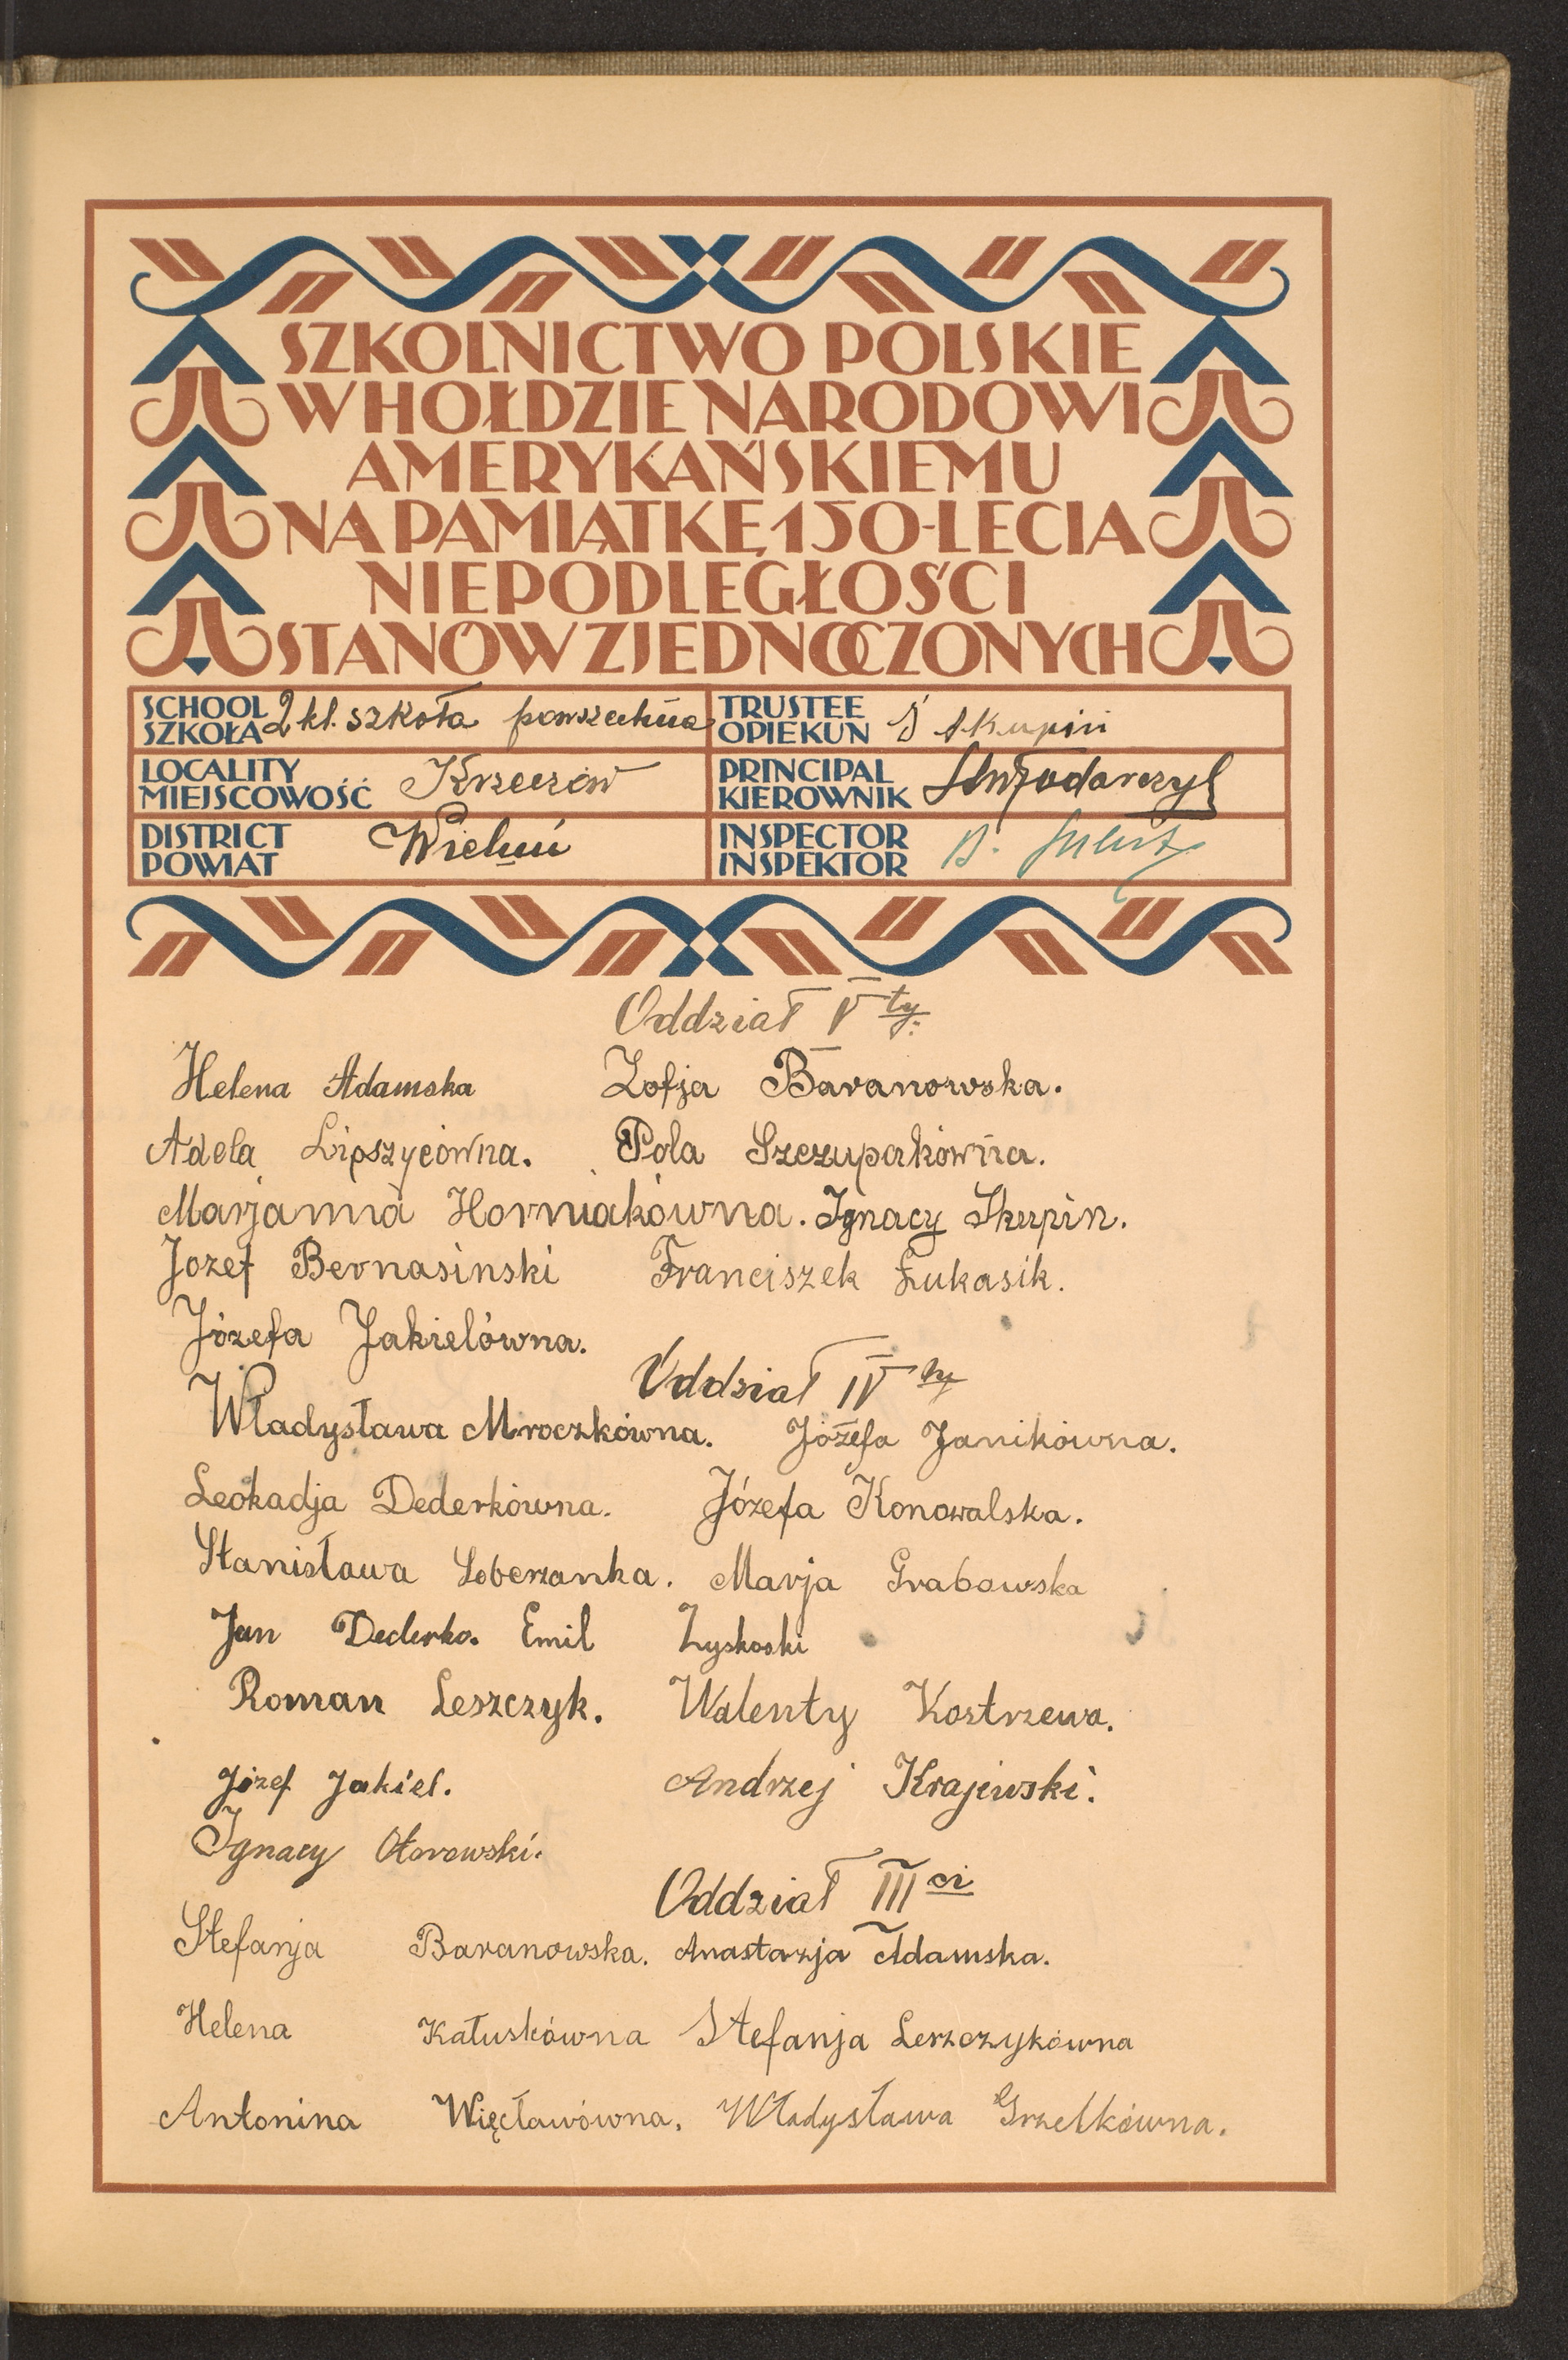 SZKOLNICTWO POLSKIE
W HOŁDZIE NARODOWI
AMERYKAŃSKIEMU
NA PAMIĄTKĘ 150-LECIA
NIEPODLEGŁOŚCI
STANÓW ZJEDNOCZONYCH
SCHOOL
SZKOŁA 2 kl. szkoła powszechna
TRUSTEE
OPIEKUN S Skupiń
LOCALITY
MIEJSCOWOŚĆ Krzeczów
PRINCIPAL
KIEROWNIK Włodarczyk
DISTRICT
POWIAT Wieluń
INSPECTOR
INSPEKTOR
Oddział V ty.
Helena Adamska Zofja Baranowska.
Adela Lipszycówna. Pola Szczupakówna.
Marjanna Horniakówna. Ignacy Skupin.
Jozef Bernasinski Franciszek Łukasik.
Józefa Jakielówna.
Oddział IV ty
Władysława Mroczkówna. Józefa Janikówna.
Leokadja Dederkówna. Józefa Konowalska.
Stanisława Loberzanka. Marja Grabowska
Jan Dederko. Emil Zyskoski
Roman Leszczyk. Walenty Kostrzewa.
Józef Jakiel. Andrzej Krajewski.
Ignacy Otorowski.
Oddział III ci
Stefanja Baranowska. Anastazja Adamska.
Helena Kałuskówna Stefanja Leszczykówna
Antonina Więcławówna, Władysława Grzelkówna.